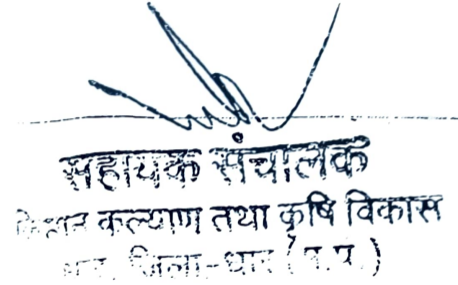 सहायक संचालक
किसान कल्याण तथा कृषि विकास
जिला-धार (म.प्र.)